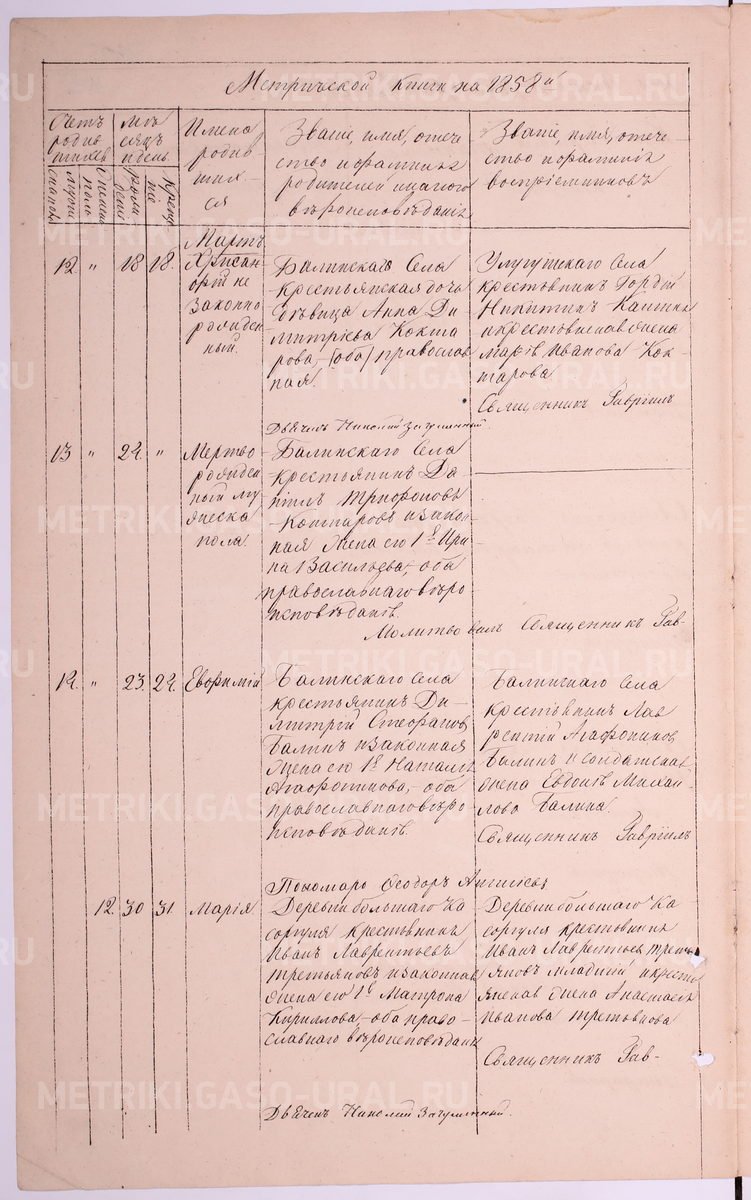 Метрической книги на 1858й
Счетъ
родив
шихся
Мѣ
сяцъ
и день
Имена
родив
ших-
ся
Званіе, имя, отече
ство и фамилія
родителей и какого
вѣроисповѣданія
Званіе, имя, отече-
ство и фамилія
воспріемниковъ
Мартъ
12 " 18 18.
Хрисан-
фъ не
законно
рожден
ный.
Балинскаго Села
крестьянская дочь
дѣвица Анна Ди
митріева Кокша
рова,- (оба) православ
ная.
Улугушскаго Села
крестьянинъ Гордій
Никитинъ
и крестьянская жена
Марія Иванова Кок-
шарова
Священникъ Гавріилъ
Дьячекъ Николай Загуменный.
13 " 24. "
Мертво
рожден
ный му
жеска
пола.
Балинскаго Села
крестьянинъ Да
ніилъ Трифоновъ
Кокшаровъ и закон
ная жена его 1я Ири
на Васильева, оба
православнаго вѣро
исповѣданія.
Молитвовалъ Священникъ Гав-
14. " 23. 24.
Евфимій
Балинскаго Села
крестьянинъ Ди-
митрій Стефановъ
Балинъ и законная
жена его 1я Наталья
Агафонинова,- оба
православнаго вѣро
исповѣданія.
Балинскаго Села
крестьянинъ Лав
рентій Агафониковъ
Балинъ и солдатская
жена Евдокія Михаи-
лова Балина.
Священникъ Гавріилъ
Пономарь Ѳеодоръ
12. 30 31.
Марія
Деревни большаго Ка
саргуля крестьянинъ
Иванъ Лаврентьевъ
Третьяковъ и законная
жена его 1я Матрона
Кириллова,- оба право-
славнаго вѣроисповѣданія
Деревни большаго Ка
саргуля крестьянинъ
Иванъ Лаврентьевъ Треть
яковъ младшій и кресть
янская жена Анастасія
Иванова Третьякова
Священникъ Гав-
Дьячекъ Николай Загуменный.
METRIKI.GASO-URAL.RU